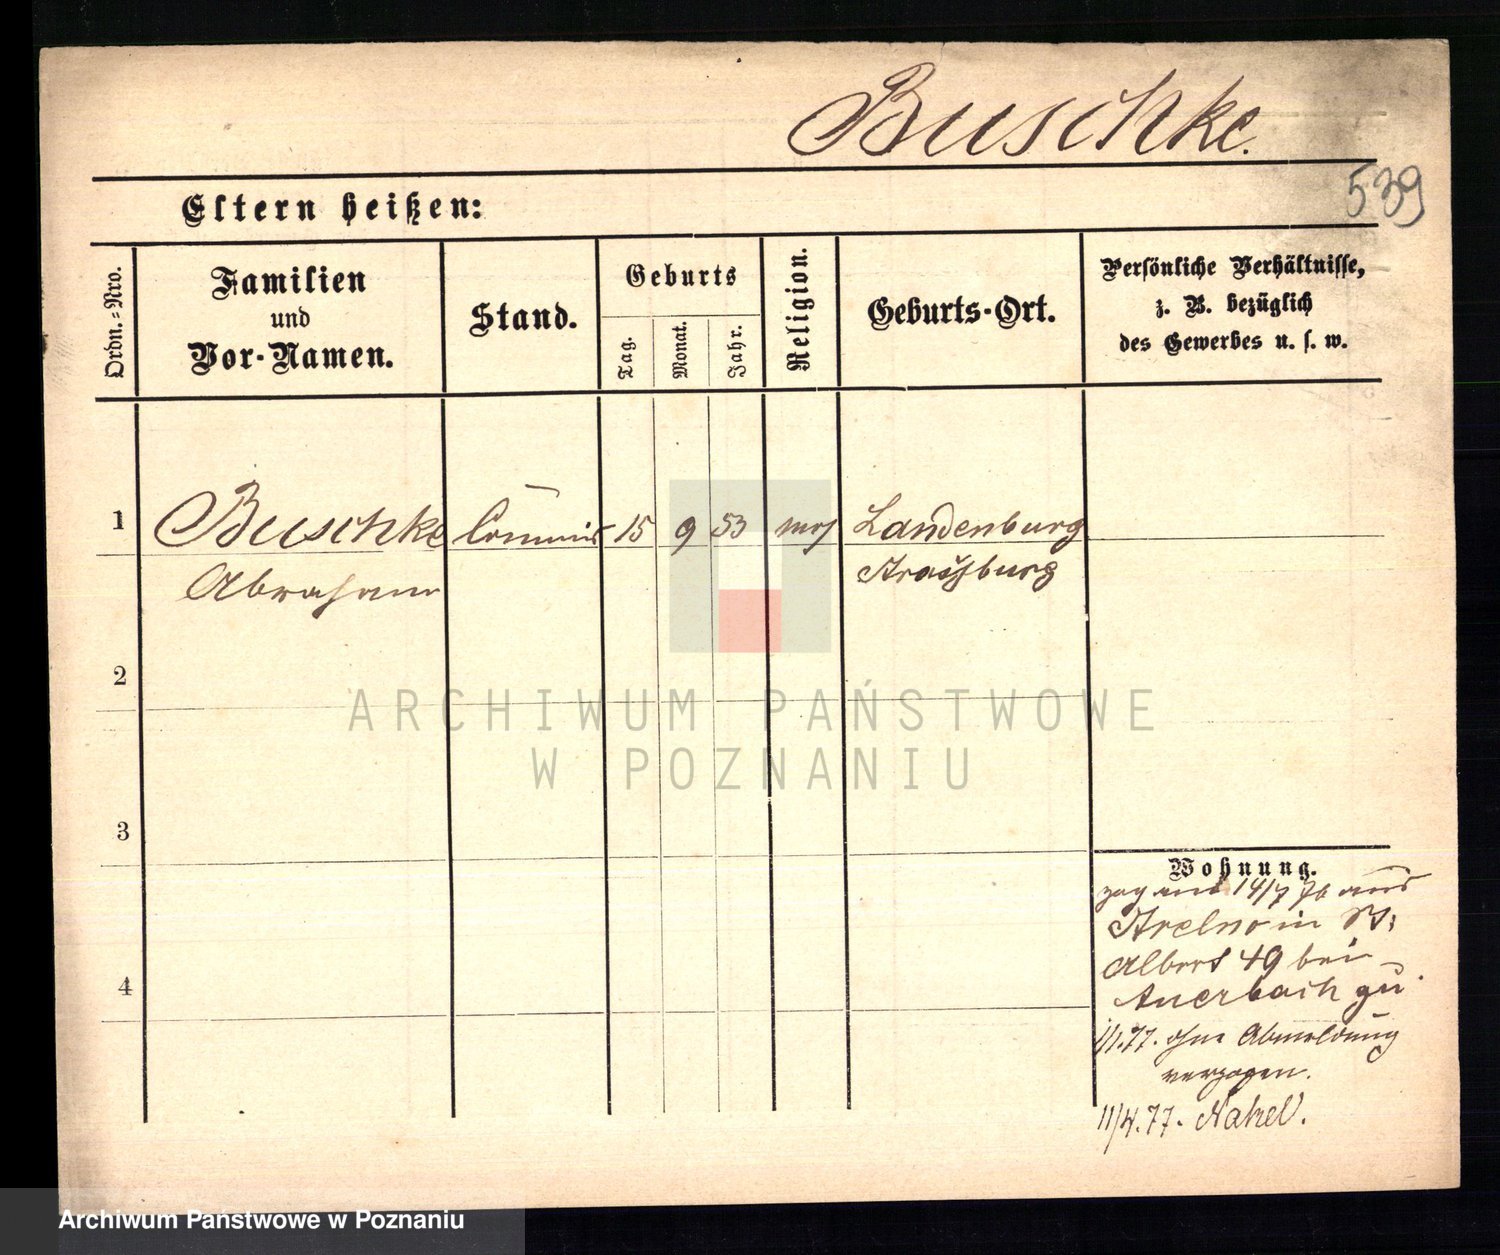 Buschke.
539
Eltern heißen:
Ordn.-Nro.
Familien
und
Vor-Namen.
Stand.
Geburts
Tag.
Monat.
Jahr.
Religion.
Geburts-Ort.
Persönliche Verhältnisse,
z. B. bezüglich
des Gewerbes u. s. w.
1 Buschke Commis 15 9 53 mos Landenburg
Abraham Strassburg
2
3
4
Wohnung.
14/7 76 aus
Strelno in St.
Albert 49 bei
Auerbach zu
1/1.77. ohne Abmeldung
verzogen.
11/4.77. Nakel.
ARCHIWUM PAŃSTWOWE
W POZNANIU
Archiwum Państwowe w Poznaniu